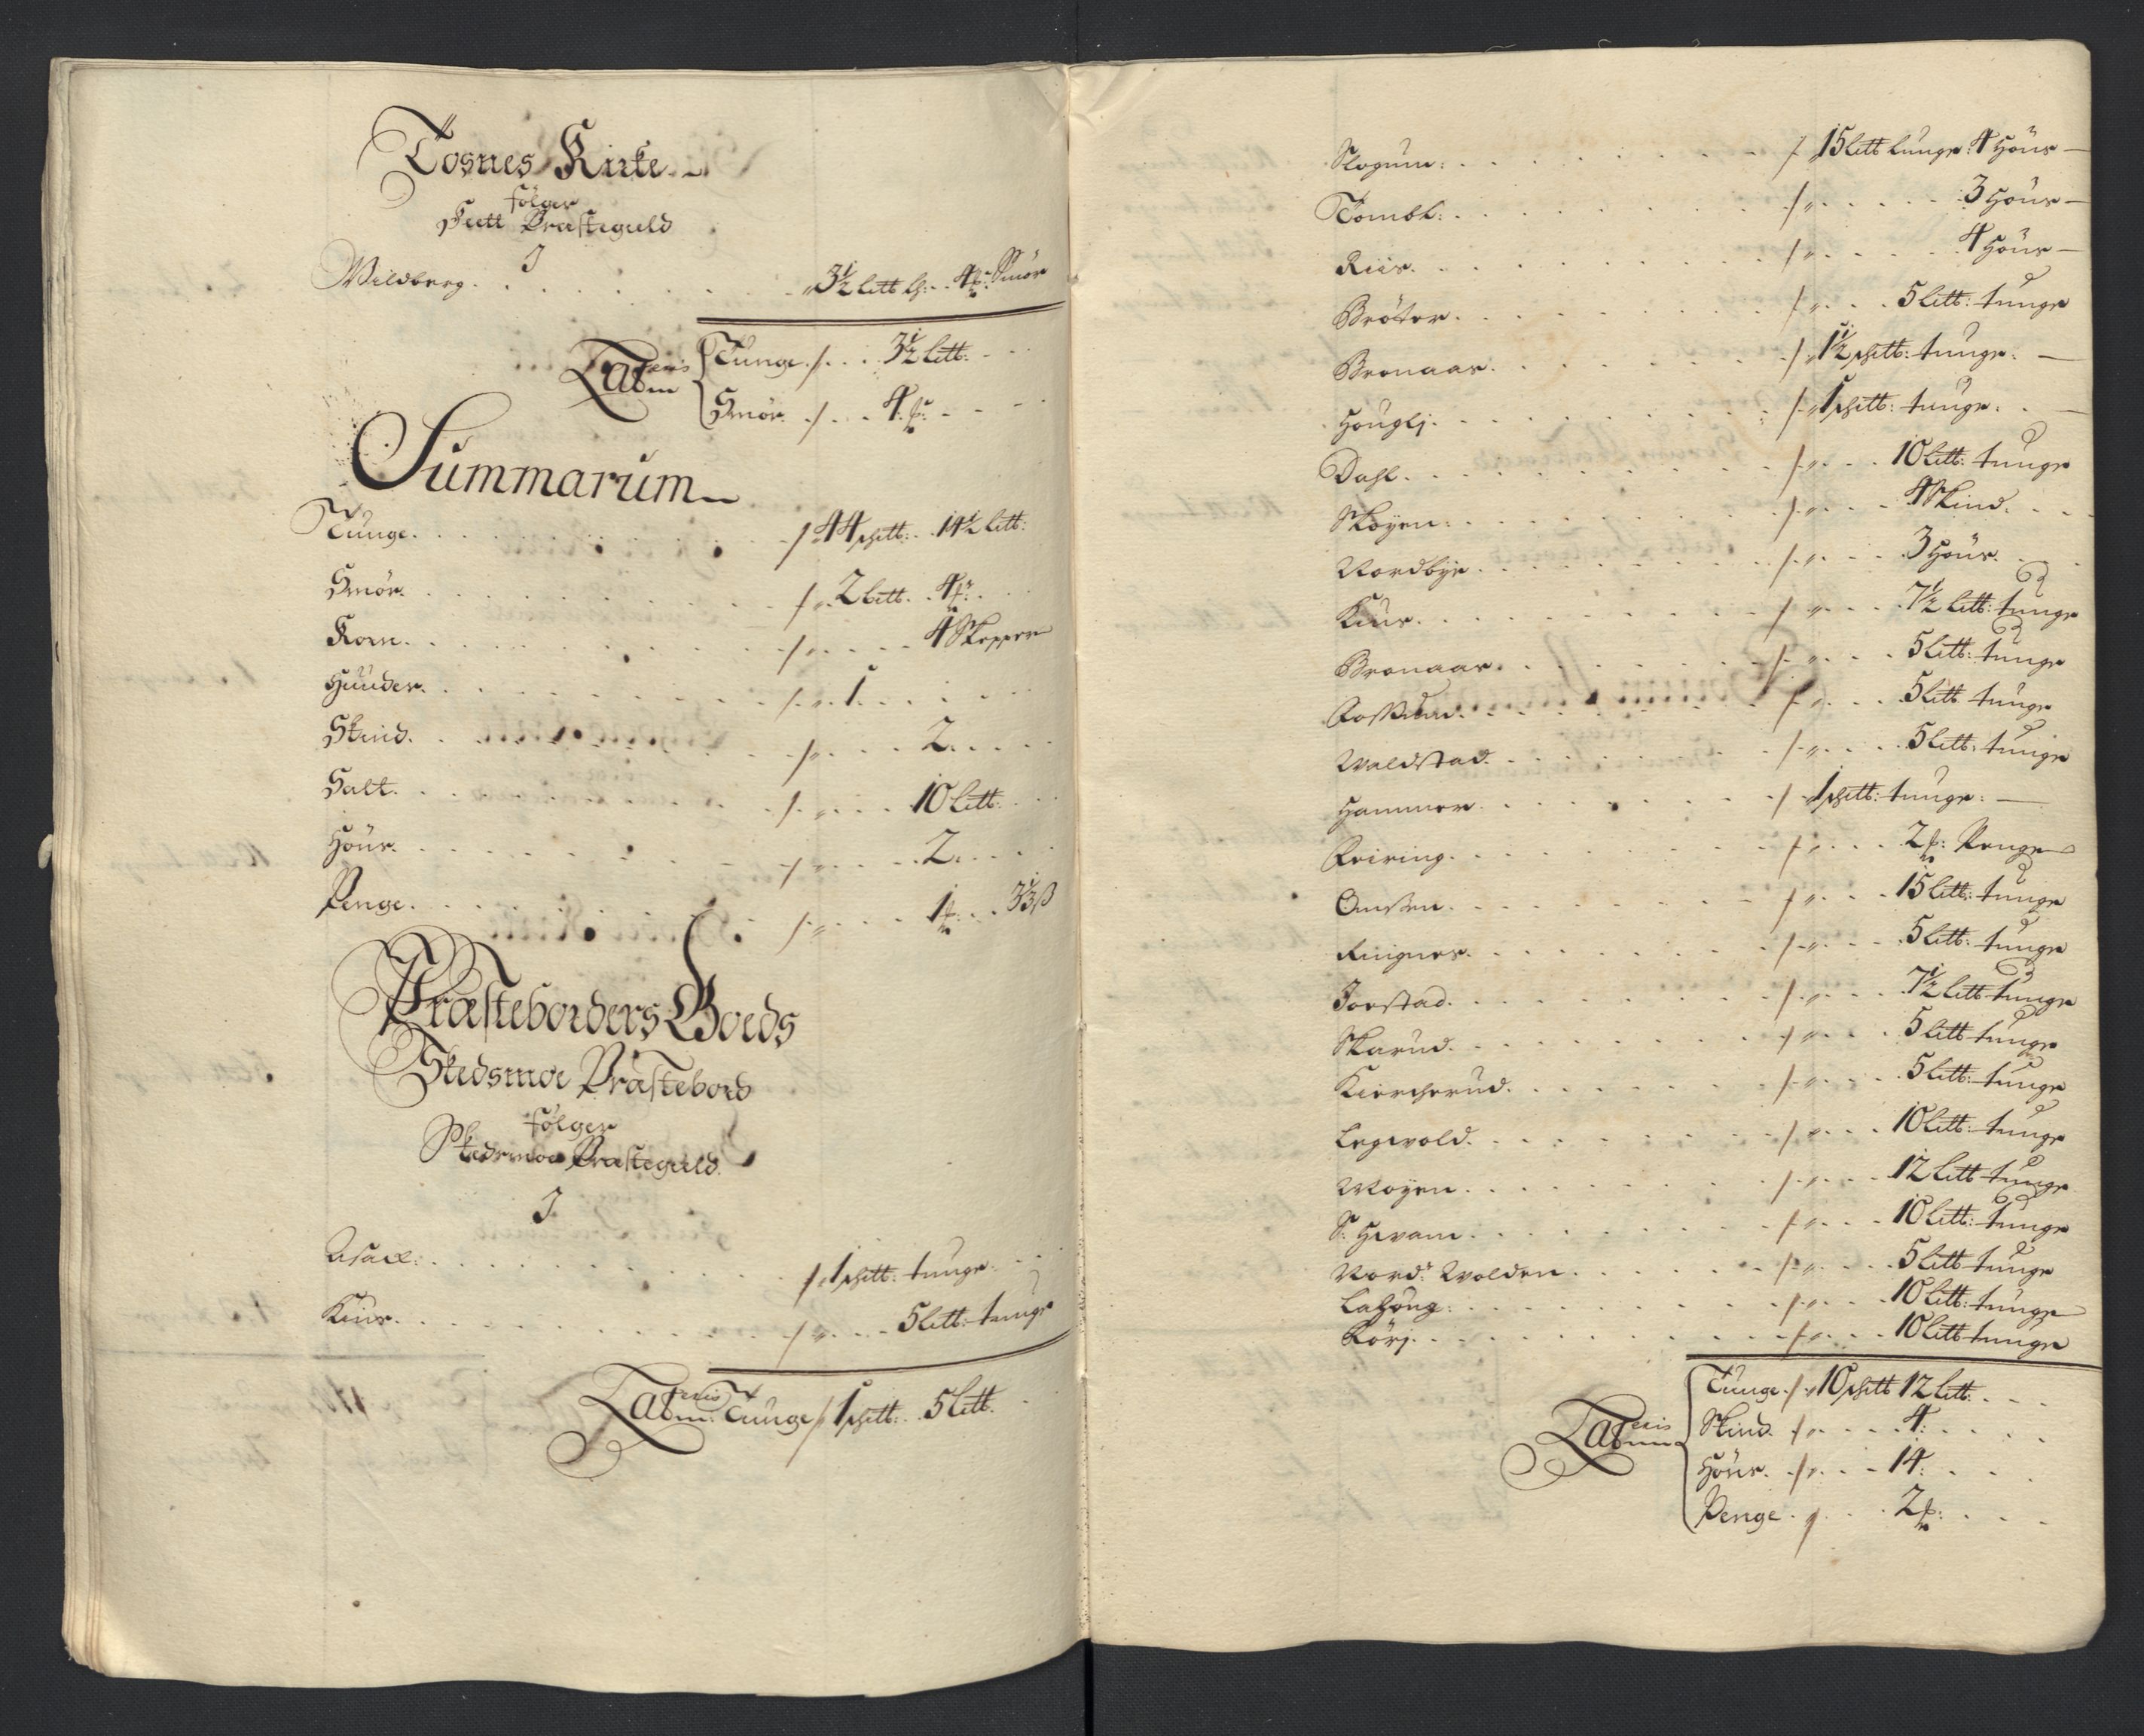 Tosnes Kirke
følger
Feett Præstegield
J
Wildberg. 3½ lett t: 4 f: Smör
Lateris
Tunge. 3½ lett:
Smör. 4 f:
Summarum
Tunge. 44 schett: 14½ lett:
Smör. 2 lett. 4 f:
Korn. 4 Skepper
Huuder. 1
Skind. 2
Salt. 10 lett
Höns. 2
Penge. 1 f: 3⅓ ß
Præsteborders Goeds
Skedsmoe Præstebord
følger
Skedsmoe Præstegield
J
Asach: 1 schett: tunge
Kius. 5 lett: tunge
Lateris Tunge 1 schett: 5 lett.
Skogum: 15 lett tunge: 4 Höns
Tombl: 3 Höns
Riis. 4 Höns
Bröter. 5 lett: tunge
Bronaas. 1½ schett: tunge.
Hougli. 1 schett: tunge.
Dahl. 10 lett: tunge
Skoyen. 4 Skind.
Nordbye. 3 Höns.
Kius. 7½ lett: tunge
Bronaas. 5 lett: tunge
5 lett tunge
Waldstad. 5 lett: tunge
Hammer. 1 schett: tunge.
Reiring. 2 f: Penge
15 lett: tunge
Ringnes. 5 lett: tunge
Jorstad. 7½ lett tunge
Skarud. 5 lett tunge
Kiercherud. 5 lett: tunge
Legwold. 10 lett: tunge
Moyen. 12 lett tunge
S: Hwam. 10 lett: tunge
Nord: Wolden. 5 lett tunge
10 lett: tunge
Körj. 10 lett tunge
Lateris
Tunge. 10 schett 12 lett:
Skind. 4:
Höns. 14:
Penge. 2 f: